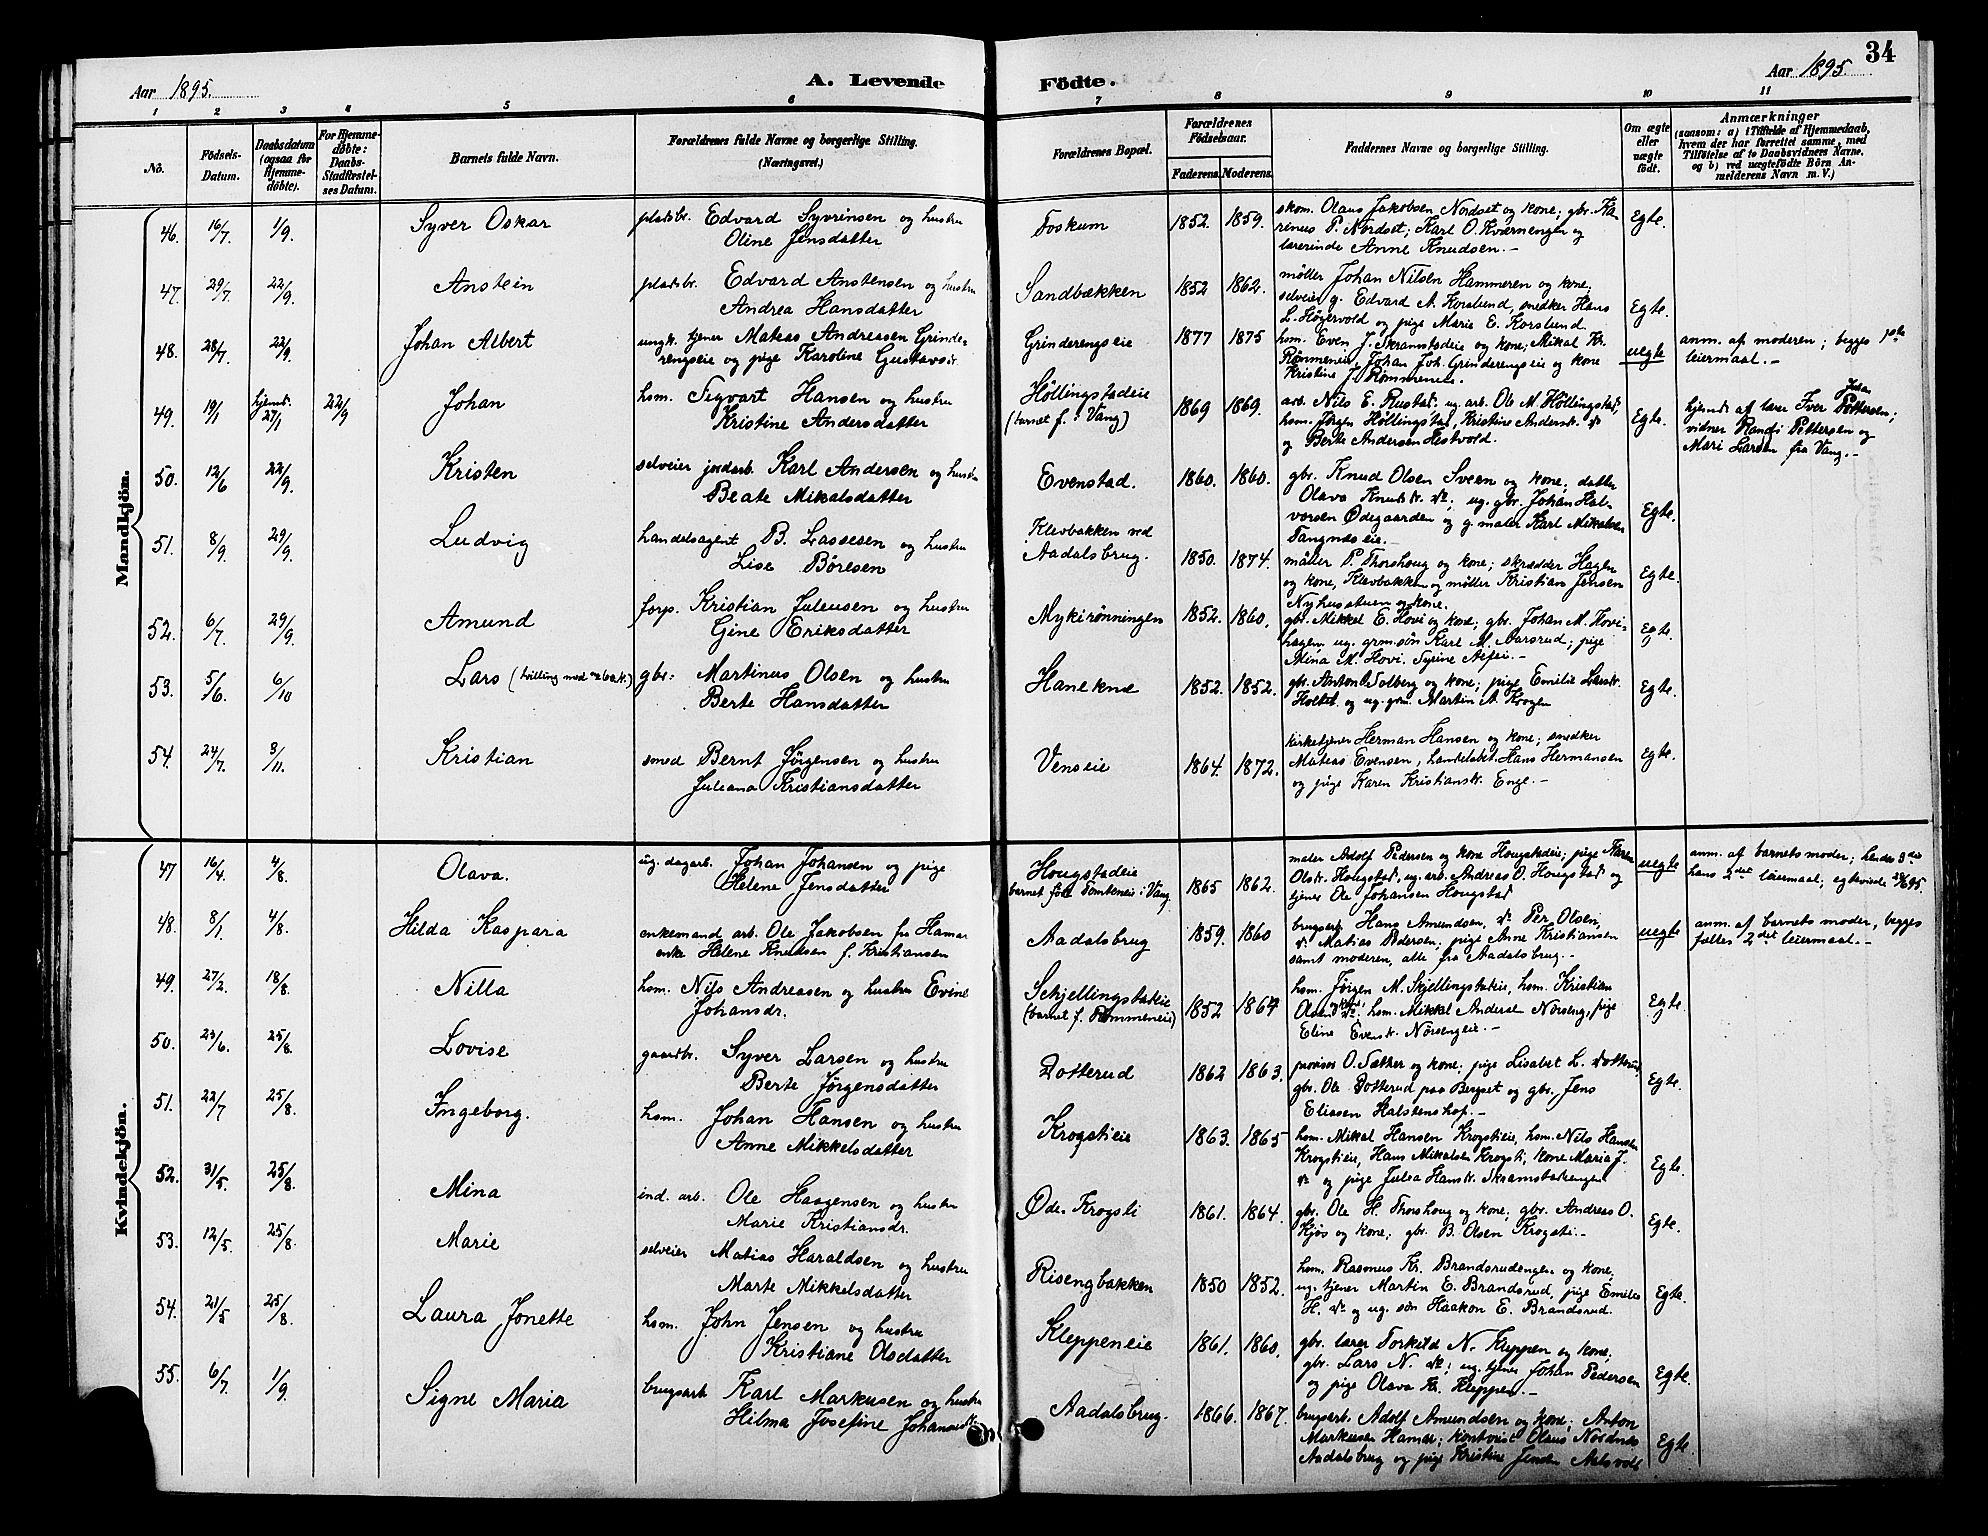 34
Aar 1895.
A. Levende Födte.
Aar 1895
1 2 3 4 5 6 7 8 9 10 11
No.
Födsels-Datum.
Daabsdatum (ogsaa for Hjemmedöbte).
For Hjemmedöbte: Daabs-Stadfæstelses Datum.
Barnets fulde Navn.
Forældrenes fulde Navne og borgerlige Stilling. (Næringsvei.)
Forældrenes Bopæl.
Forældrenes Födselsaar.
Faderens. Moderens.
Faddernes Navne og borgerlige Stilling.
Om ægte eller uægte födt.
Anmærkninger
(saasom: a) i Tilfælde af Hjemmedaab, hvem der har forrettet samme, med Tilföielse af to Daabsvidners Navne, og b) ved uægtefödte Börn Anmelderens Navn m. V.)
Mandkjön.
46. 16/7 1/9. Syver Oskar pladsbr. Edvard Syvrinsen og hustru Foskum 1852. 1859. skom. Olaus Jakobsen Nordset og kone; gbr. Ka- Egte.
Oline Jensdatter rinus P. Nordset; Karl O. Kværnengen og
lærerinde Anne Knudsen.-
47. 29/7 22/9. Anstein pladsbr. Edvard Anstensen og hustru Sandbækken 1852 1862. möller Johan Nilsen Hammeren og kone; Egte.
Andrea Hansdatter selveier g. Edvard A. Korslund, snedker Hans
L. Högervold og pige Marie E. Korslund.
48. 28/7 22/9. Johan Albert ungk. tjener Matias Andreasen Grinde- Grinderengseie 1877 1875 hsm. Even J. Skramstadeie og kone; Mikal Kr. uegte anm. af moderen; begges 1ste
rengseie og pige Karoline Gustavsdr. Rømmeneie, Johan Joh. Grinderengseie og kone leiermaal.-
Kristine J. Rømmeneie.
49. 19/1 hjemd. 27/1 22/9 Johan hsm. Sigvart Hansen og hustru Höllingstadeie 1869 1869. arb. Nils E. Rustad; ug. arb. Ole M. Höllingstad, Egte. hjemd. af lærer Iver Johan Pettersen;
Kristine Andersdatter (barnet f. i Vang) hsm. Jörgen Höllingstad, Kristine Andersdt. vidner Randi Pettersen og
og Berte Andersen Hestvold. Mari Larsen fra Vang.-
50. 12/6 22/9. Kristen selveier jordarb. Karl Andersen og hustru Evenstad. 1860. 1860. gbr. Knud Olsen Sveen og kone; datter Egte.
Beate Mikalsdatter Olava Knudsdt.; ug. gbr. Johan Hal-
vorsen Ødegaarden og g. maler Karl Mikalsen
Tangnæseie.-
51. 8/9 29/9. Ludvig handelsagent B. Lassesen og hustru Klevbakken ved Aadalsbrug. 1850. 1874. möller P. Thorshoug og kone; skrædder Hagen Egte.
Lise Böresen og kone, Klevbakken og möller Kristian Jensen
Nyhusstuen og kone.
52. 6/7 29/9. Amund forp. Kristian Juliusen og hustru Mykirönningen 1852. 1860. gbr. Mikkel E. Hovi og kone; gbr. Johan M. Hovi- Egte.
Gine Eriksdatter hagen, ug. grm.sön Karl M. Aarsrud; pige
Mina M. Hovi.
53. 5/6. 6/10 Lars (tvilling med gbr: Martinus Olsen og hustru Haneknæ 1852. 1852. gbr. Anton Solberg og kone; pige Emilie Larsdt. Egte.
Berte Hansdatter og ug. grm. Martin A. Krogen
54. 24/7 3/11. Kristian smed Bernt Jørgensen og hustru Venseie 1864. 1872. kirketjener Herman Hansen og kone; snedker Egte.
Juliana Kristiansdatter Matias Evensen, Hans Hermansen
og pige Karen Kristiansdt. Enge.-
Kvindekjön.
47 16/4 4/8. Olava. ug. dagarb. Johan Johansen og pige Hougstadeie 1865 1862. maler Adolf Pedersen og kone Hougstadeie; pige Karen uegte anm. af barnets moder; hendes 3die
Helene Jensdatter barnet född i Vang Olsdt. Hougstad, ug. arb. Andreas O. Hougstad og hans 2det leiermaal; egteviede
tjener Ole Johansen Hougstad
48. 8/1. 4/8. Hilda Kaspara enkemand arb. Ole Jakobsen fra Hamar Aadalsbrug 1859. 1860 brugsarb. Hans Amundsen, do. Per Olsen, uegte anm. af barnets moder, begges
enke Helene Knudsen f. Kristiansen do. Matias Pedersen; pige Anne Kristiansen fælles 2det leiermaal.-
samt moderen, alle fra Aadalsbrug.-
49. 27/2. 18/8. Nilla hsm. Nils Andreasen og hustru Evine Skjellingstadeie 1852 1864 hsm. Jørgen M. Skjellingstadeie, hsm. Kristian Egte.
Johansdr. (barnet f. Rømmeneie) Olsen og kone; hsm. Mikkel Andersen Nörseng, pige
Eline Evensdt. Nörsengeie.-
50. 23/6. 25/8. Lovise gaardbr. Syver Larsen og hustru Dotterud 1862 1863. provisor O. Sæther og kone, pige Lisabet L. Dotterud Egte.
Berte Jørgensdatter gbr. Ole Dotterud paa Berget og gbr. Jens
Eliasen Halstenshof.-
51. 22/7 25/8. Ingeborg. hsm. Johan Hansen og hustru Krogstieie 1863. 1865 hsm. Mikal Hansen Krogstieie, hsm. Nils Hansen Egte.
Anne Mikkelsdatter Krogstieie, Hans Mikalsen Krogsti, kone Maria J.
do. og pige Julia Hansdt. Skramstadengen
52. 31/5. 25/8. Mina ind. arb. Ole Haagensen og hustru Øde Krogsti 1861. 1864. gbr. Ole H. Thorshoug og kone; gbr. Andreas O. Egte.
Marie Kristiansdr. Kjös og kone; gbr. B. Olsen Krogsti.-
53. 12/5. 25/8. Marie selveier Matias Haraldsen og hustru Risengbakken 1850 1852. hsm. Rasmus Kr. Brandsrudengen og kone, Egte.
Marte Mikkelsdatter ug. tjener Martin E. Brandsrud, pige Emilie
H. do. og ug. sön Haakon E. Brandsrud.
54. 21/5 25/8. Laura Jonette hsm. John Jensen og hustru Kleppeneie 1861. 1860. gbr. lærer Torkild N. Kleppen og kone, Egte.
Kristiane Olsdatter gbr. Lars N. do.; ug. tjener Johan Pedersen
og pige Olava Kr. Kleppen.-
55. 6/7. 1/9. Signe Maria brugsarb. Karl Markusen og hustru Aadalsbrug. 1866. 1867. brugsarb. Adolf Amundsen og kone; Anton Egte.
Hilma Josefine Johansdt. Markusen Hamar; kontorist Olaus Nordnæs
Aadalsbrug og pige Kristine Jensen